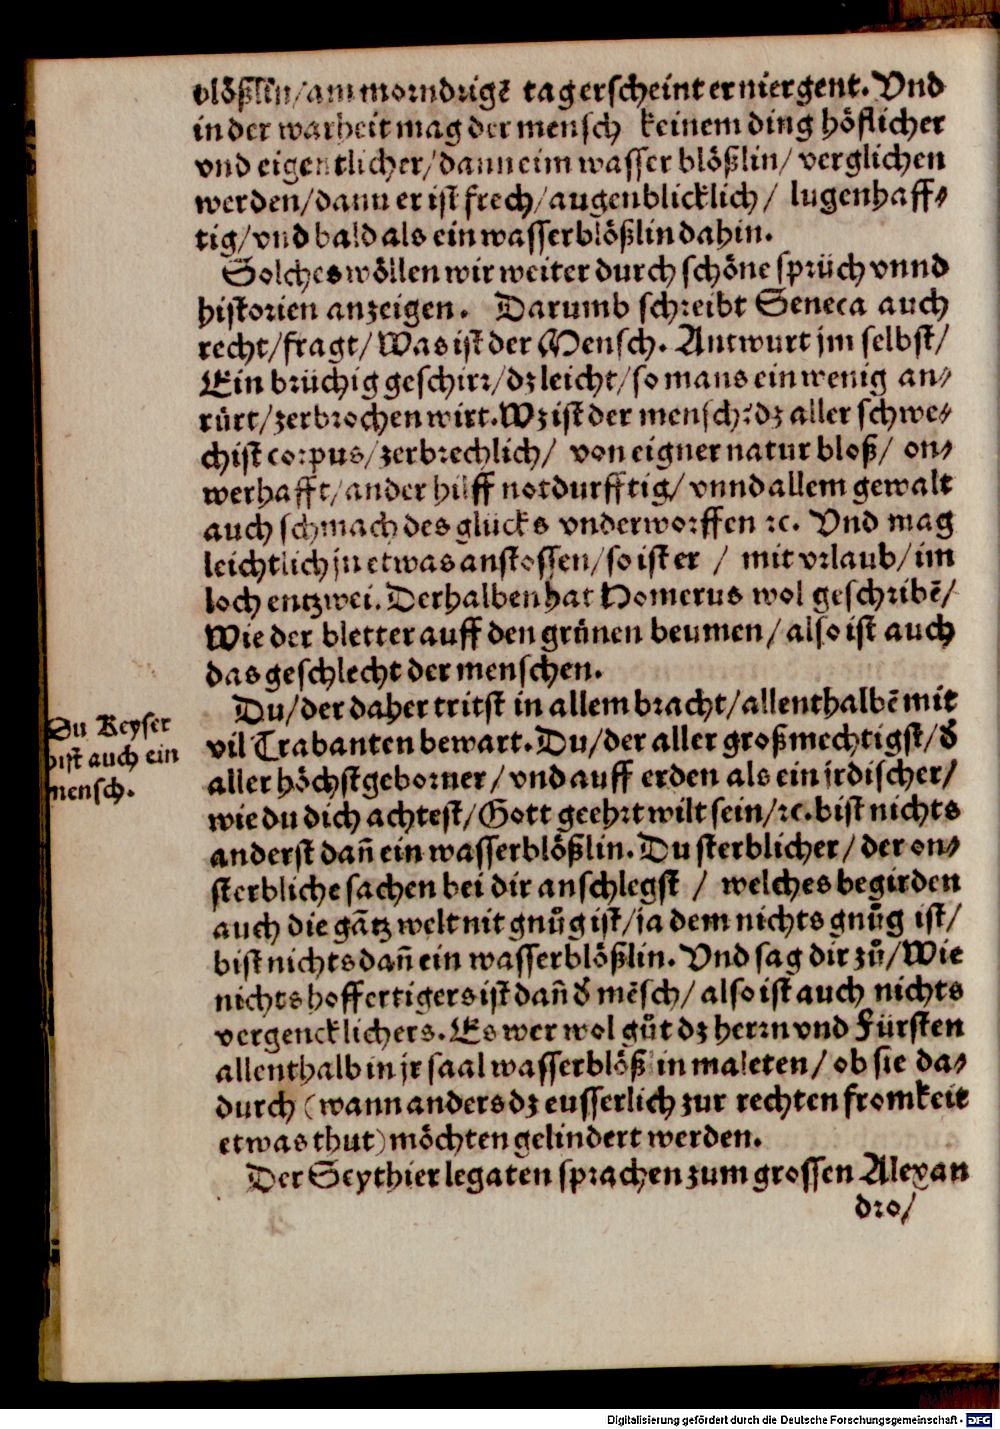 blößlin/am morndrigē tag erscheint er niergent. Vnd
in der warheit mag der mensch keinem ding höflicher
vnd eigentlicher/dann eim wasser blößlin/ verglichen
werden/dann er ist frech/augenblicklich/ lugenhaff⸗
tig/vnd bald als ein wasserblößlin dahin.
Solches wöllen wir weiter durch schöne sprüch vnnd
historien anzeigen. Darumb schreibt Seneca auch
recht/fragt/Was ist der Mensch. Antwurt jm selbst/
Ein brüchig geschirr/dz leicht/so mans ein wenig an⸗
rürt/zerbrochen wirt. Wz ist der mensch? dz aller schwe⸗
chist corpus/zerbrechlich/ von eigner natur bloß/ on⸗
werhafft/ander hilff notdurfftig/vnnd allem gewalt
auch schmach des glücks vnderworffen ꝛc. Vnd mag
leichtlich jn etwas anstossen/so ist er / mit vrlaub/im
loch entzwei. Derhalben hat Homerus wol geschribē/
Wie der bletter auff den grünen beumen/also ist auch
das geschlecht der menschen.
Du/der daher tritst in allem bracht/allenthalbē mit
vil Trabanten bewart. Du/der aller großmechtigst/ď
aller höchstgeborner/vnd auff erden als ein jrdischer/
wie du dich achtest/Gott geehrt wilt sein/ꝛc. bist nichts
anderst dañ ein wasserblößlin. Du sterblicher/der on⸗
sterbliche sachen bei dir anschlegst / welches begirden
auch die gātz welt nit gnůg ist/ja dem nichts gnůg ist/
bist nichts dañ ein wasserblößlin. Vnd sag dir zů/Wie
nichts hoffertigers ist dañ ď mēsch/also ist auch nichts
vergencklichers. Es wer wol gůt dz herrn vnd Fürsten
allenthalb in jr saal wasserblößlin maleten/ob sie da⸗
durch (wann anders dz eusserlich zur rechten fromkeit
etwas thut) möchten gelindert werden.
Der Scythier legaten sprachen zum grossen Alexan
dro/
Du Keyser
bist auch ein
mensch.
Digitalisierung gefördert durch die Deutsche Forschungsgemeinschaft - DFG